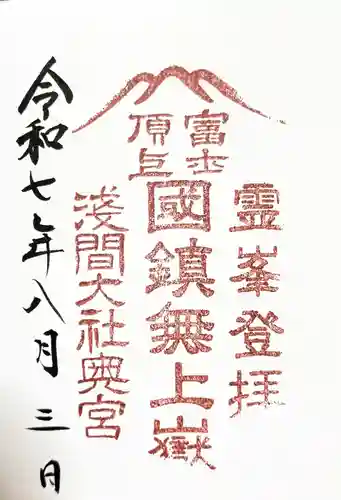 霊峯登拝
富士
頂上
國鎮無上嶽
浅間大社奥宮
令和七年八月三日